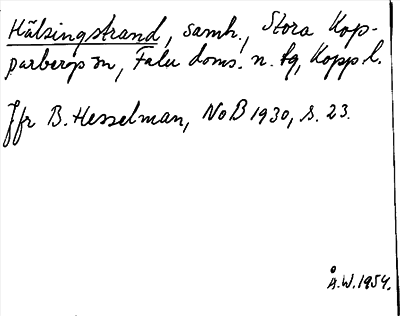 Hälsingstrand, samh., Stora Kop-
parbergs sn, Falu doms. n. tg, Kopp l.
Jfr B. Hesselman, NoB 1930, s. 23.
Å.W. 1954.